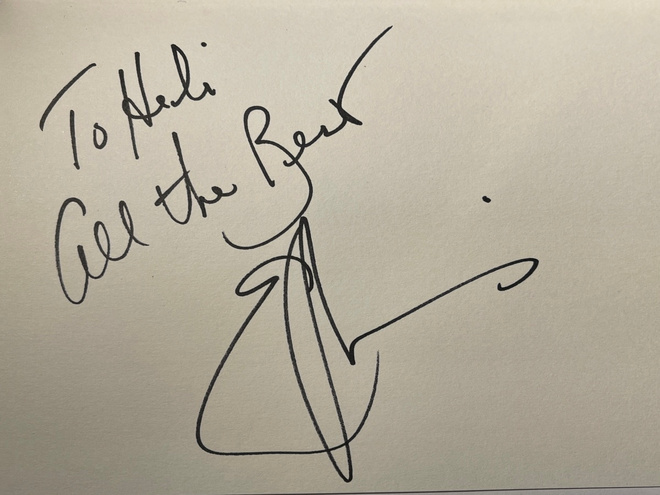 To Heli
All the Best